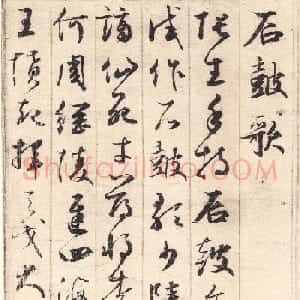 石鼓歌
張生手持石鼓文
試作石鼓歌少陵
謫仙死才薄將奈
何周綱陵遲四海
王憤起揮天戈大